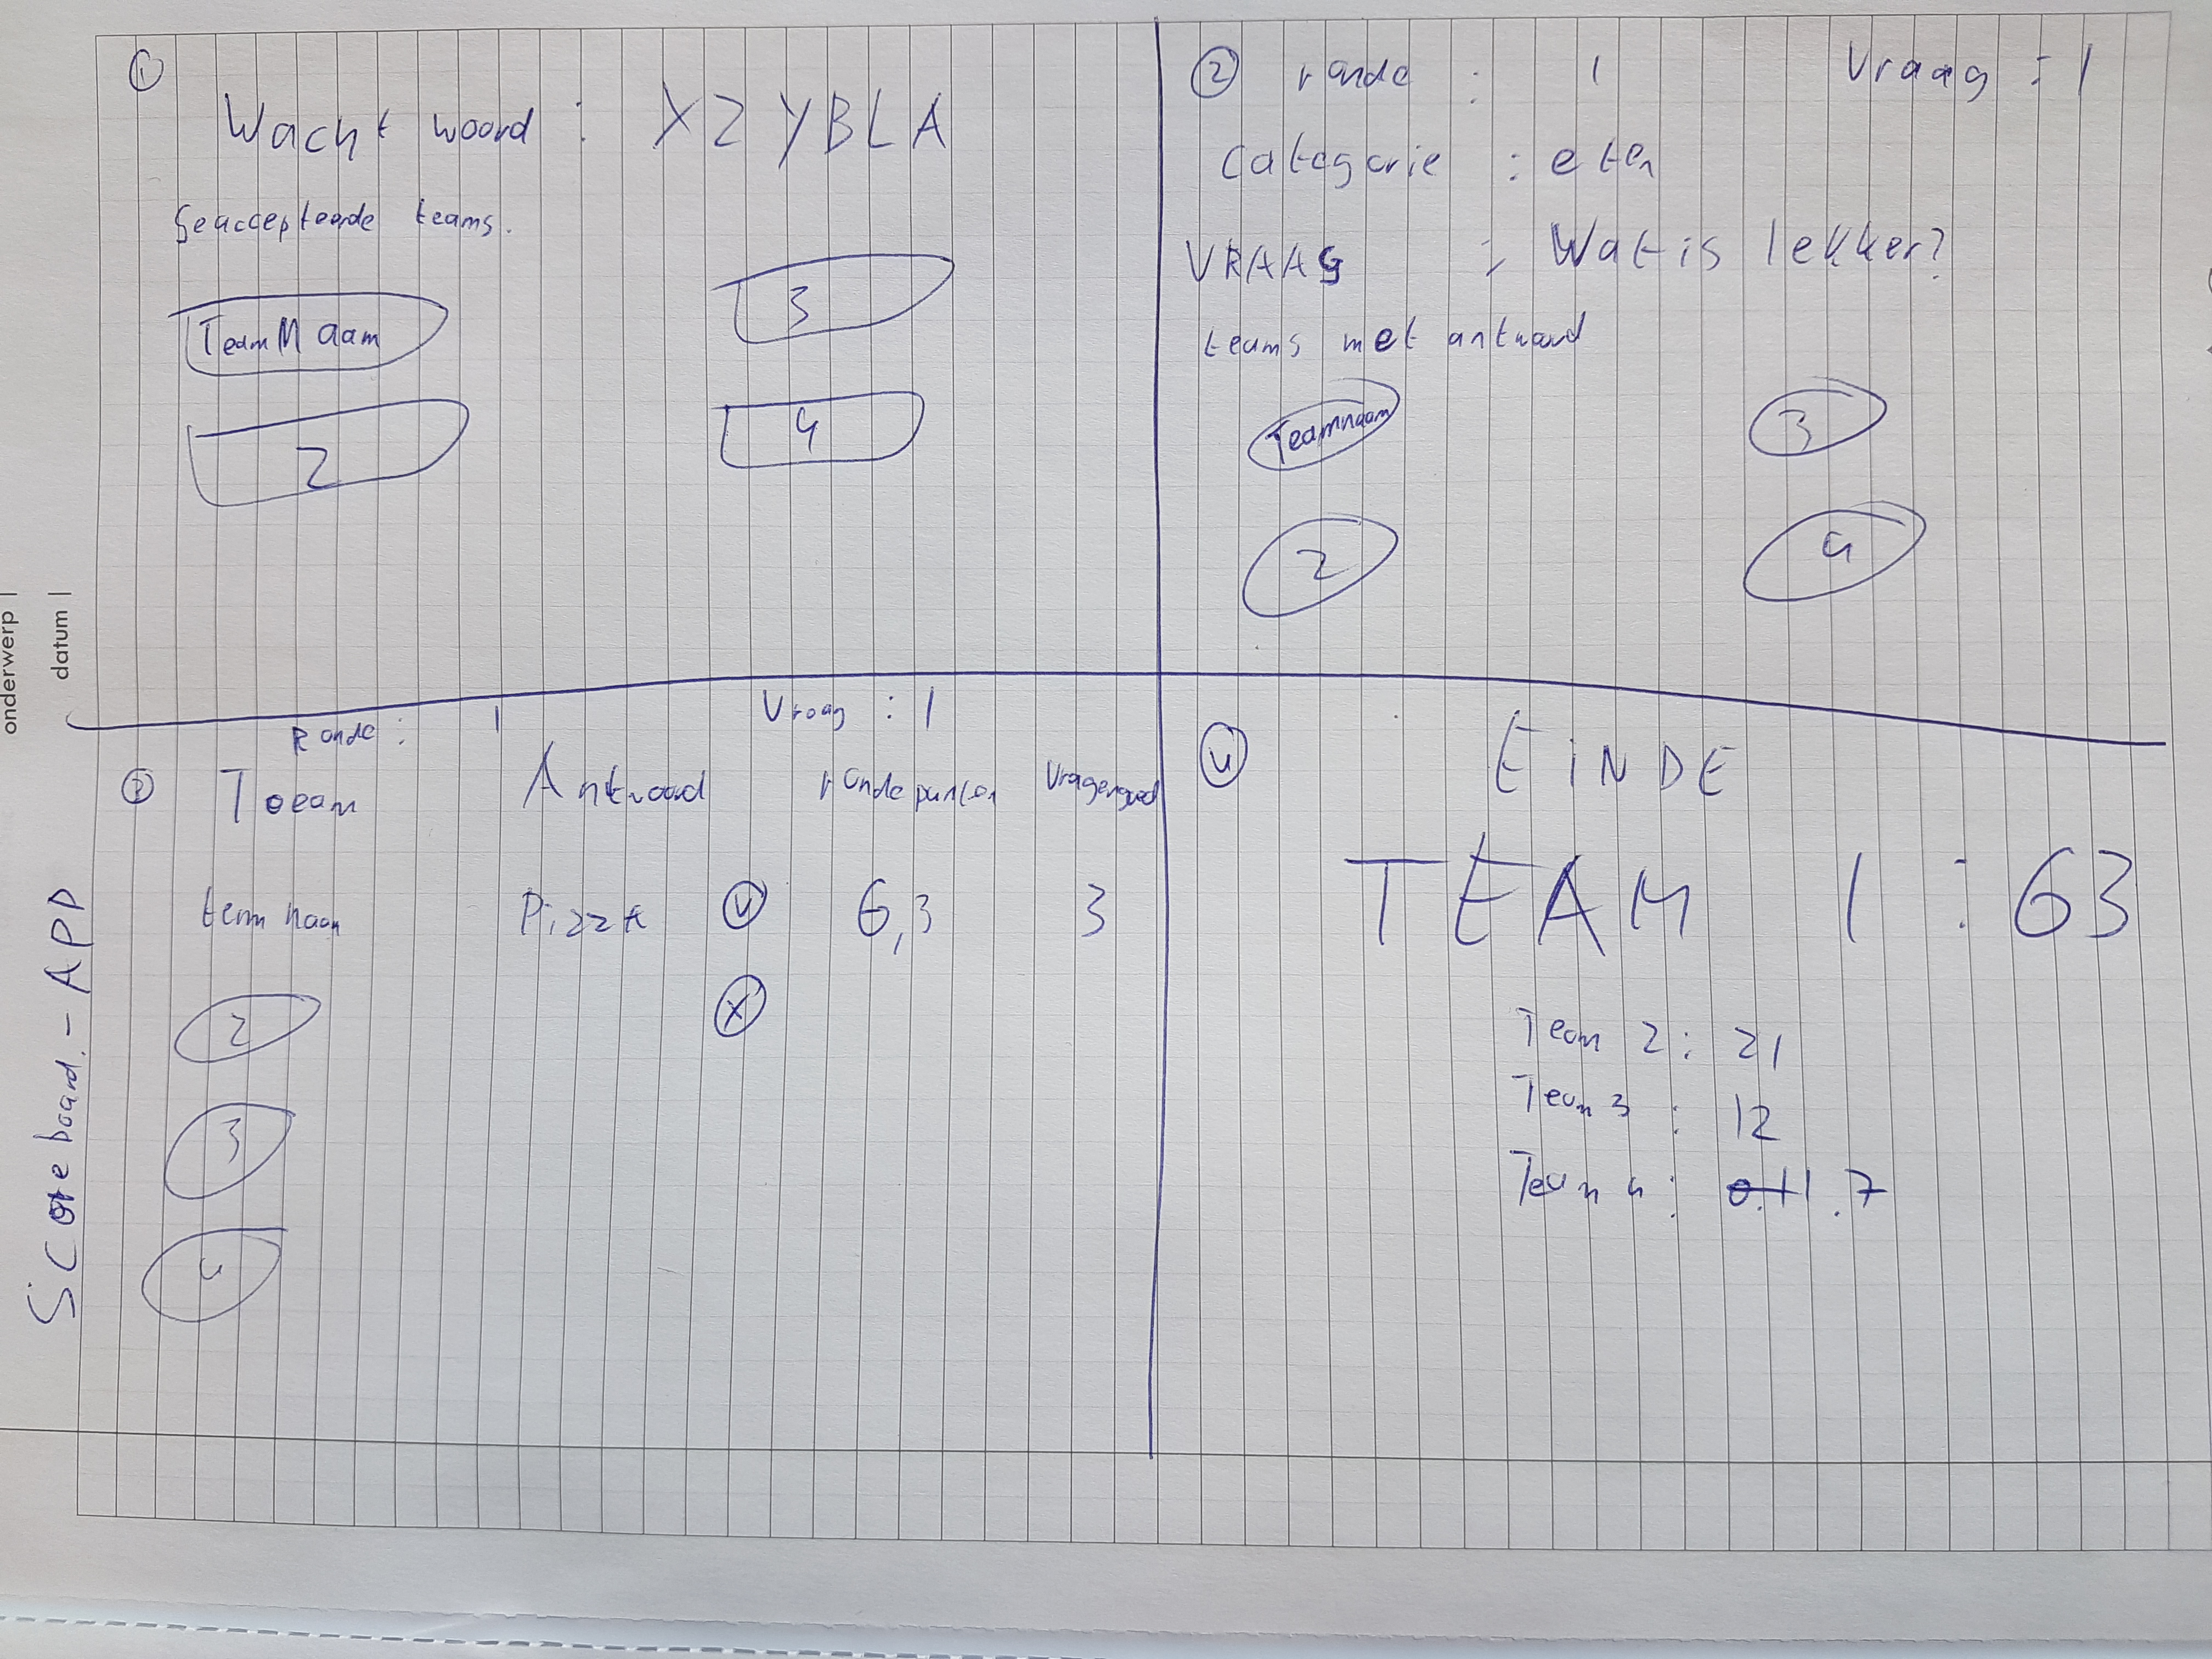 onderwerp |
datum |
Scoreboard - APP
1
Wachtwoord : XZYBLA
Geaccepteerde teams.
TeamNaam
3
2
4
2 ronde : 1 Vraag : 1
Categorie : eten
VRAAG : Wat is lekker?
teams met antwoord
Teamnaam
3
2
4
Ronde : 1 Vraag : 1
3 Toeam Antwoord rondepunten Vragengoed
team naam Pizza V 6,3 3
2 X
3
4
4 EINDE
TEAM 1 : 63
Team 2 : 21
Team 3 : 12
Team 4 : 0.11.7